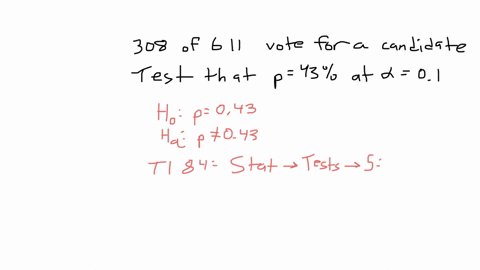 308 of 611 vote for a candidate
Test that p=43% at α=0.1
H₀: p=0.43
Hₐ: p≠0.43
TI 84: Stat→Tests→5: